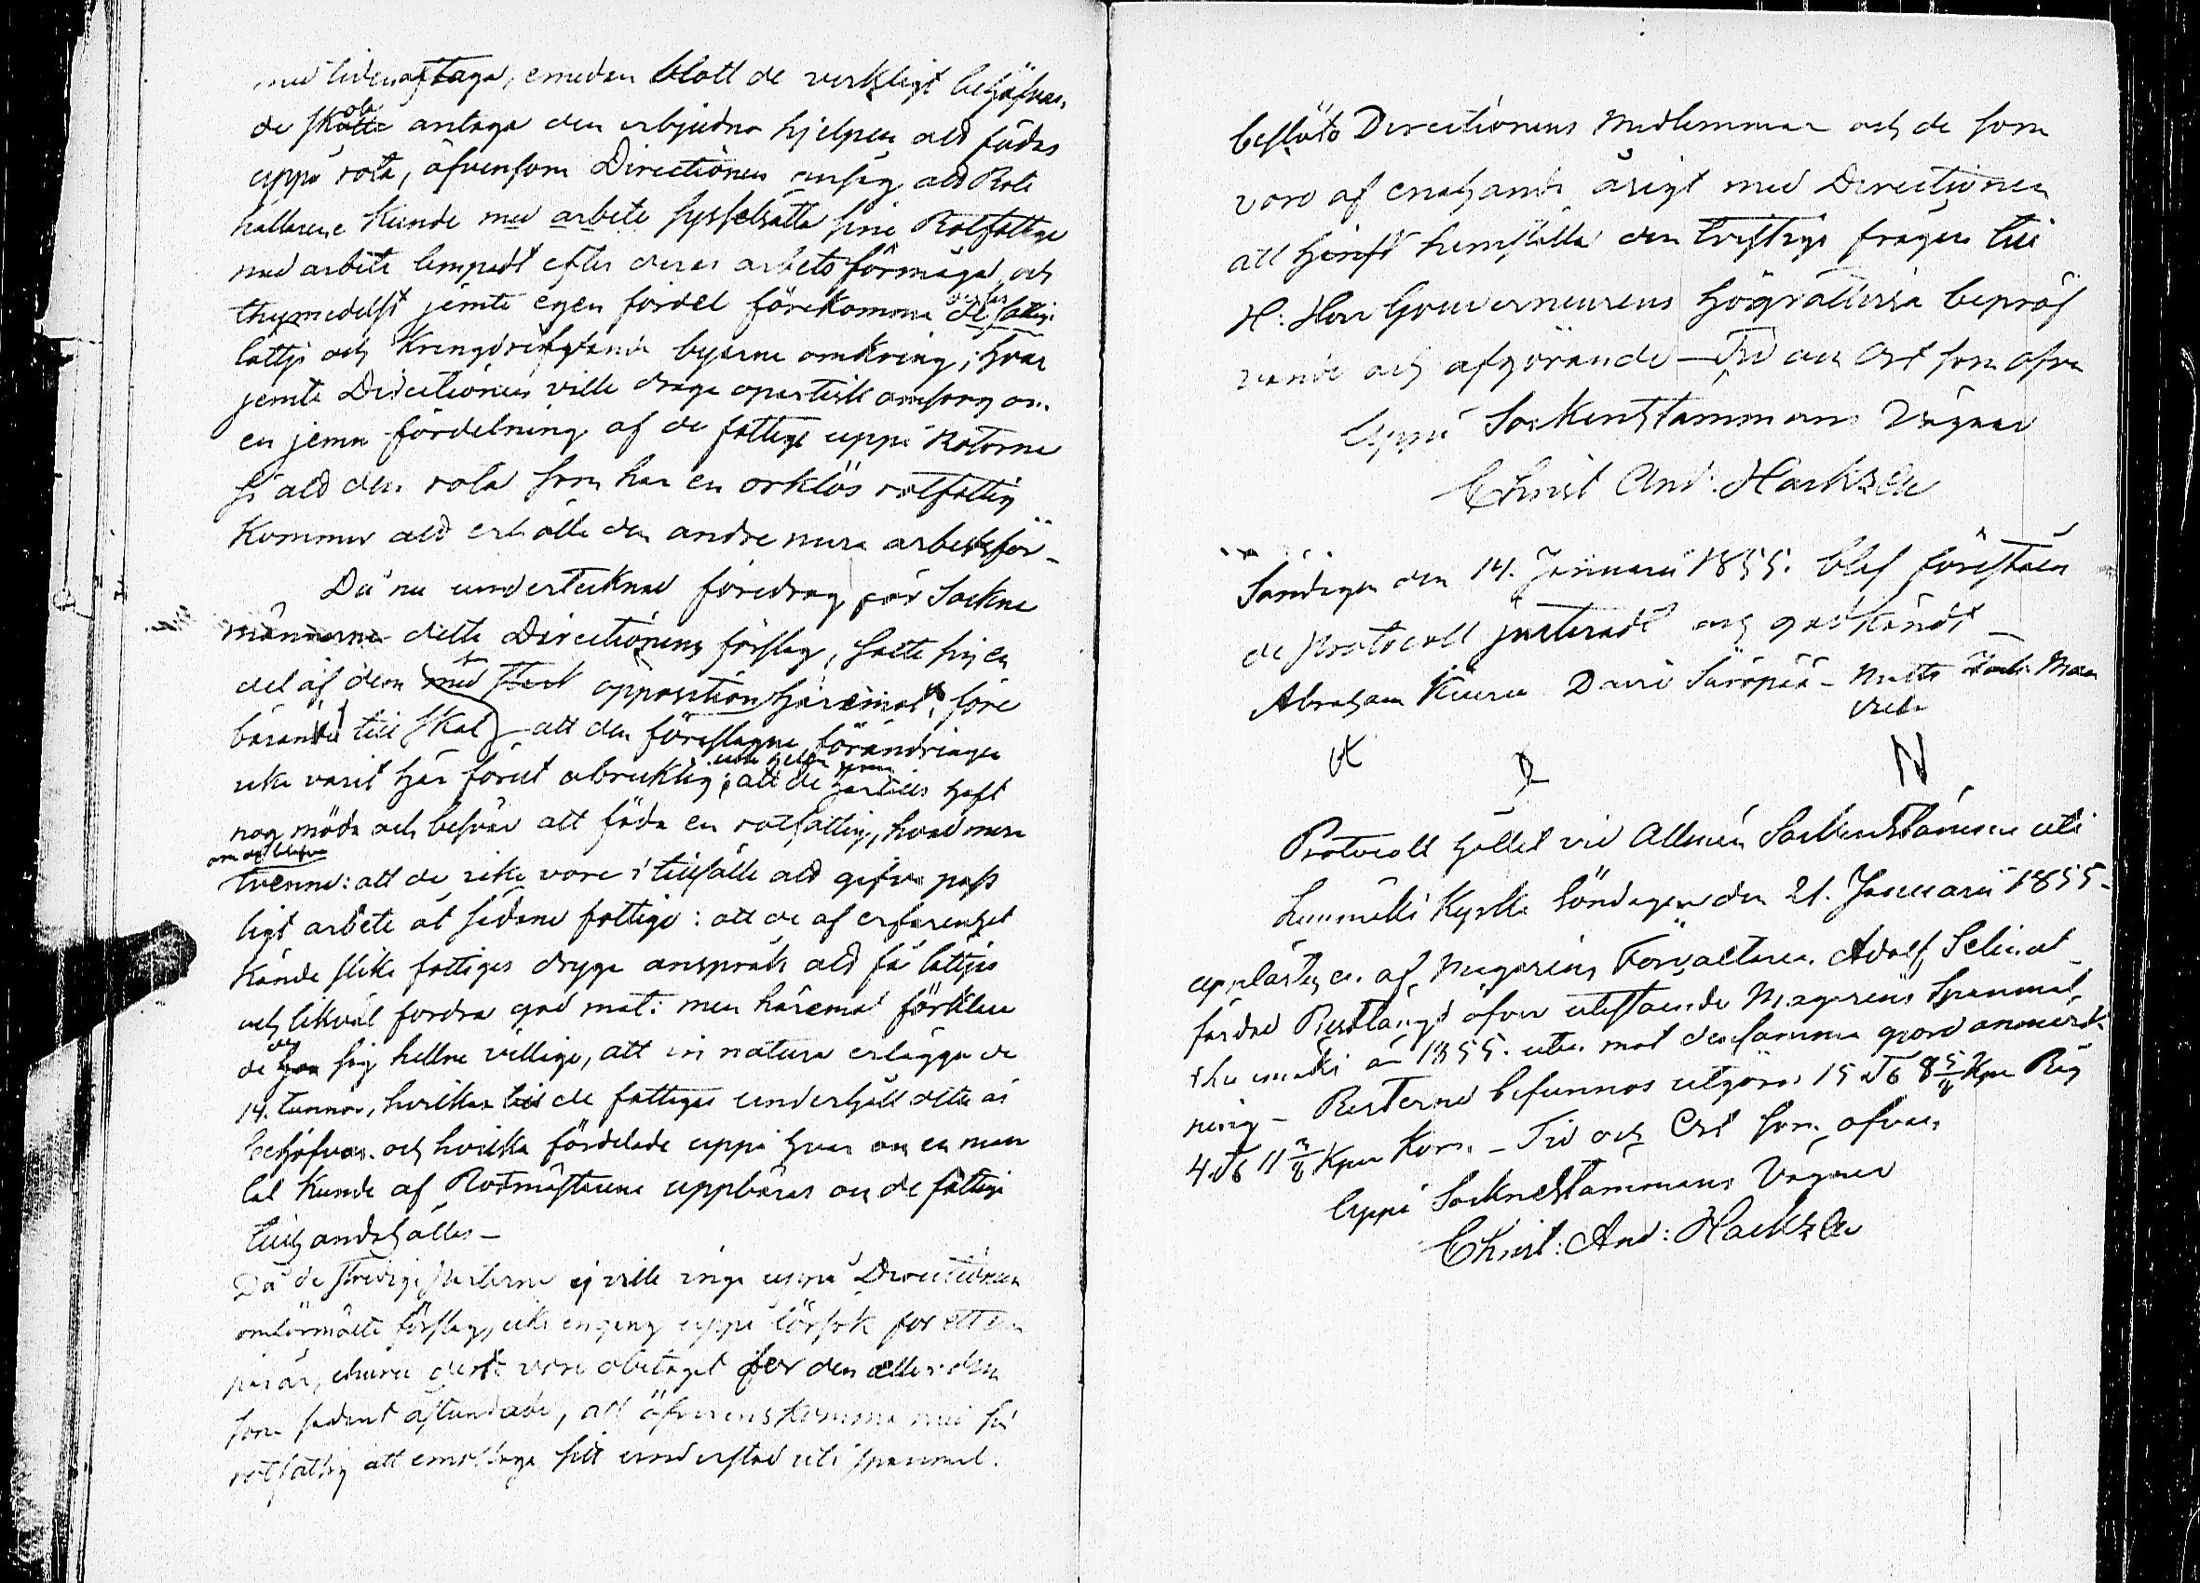 med tiden aftaga, emedan blott de verkligt behöfvan-
de skola antaga den erbjudna hjelpen att födas
uppå rota, äfvensom Directionen ansåg att Rote
hållarene kunde med arbete sysselsätta sine Rotfattige
med arbete lempadt efter deras arbetsförmåga, och
thymedelst jemte egen fördel förekomma de fattiges
lättje och kringdrifvande byarne omkring; hvar
jemte Directionen ville draga opartisk omsorg om
en jemn fördelning af de fattige uppå Rotorne
så att den rota som har en orklös rotfattig
kommer att erhålla den andre mera arbetsför_
Då nu undertecknad föredrog för Sockne
männerne detta Directionens förslag, satte sig en
del af dem med stark opposition häremot, före
bärande till skäl att den föreslagne förändringen
icke varit här förut obruklig; att de haft
nog möda och besvär att föda en rotfattig, hvad mera
om de blefvo
tvenne: att de icke vore i tillfälle att gifva pass
ligt arbete åt sådane fattige: att de af erfarenhet
kände slike fattiges dryga anspråk att få lättjas
och likväl fordra god mat: men häremot förklara
de sig hellre villige, att in natura erlägga de
14. tunnor, hvilka till de fattiges underhåll detta år
behöfvas. och hvilka fördelade uppå hvar en man
tal kunde af Rotmästarene uppbäras och de fattige
tillhandahållas_
Då de stridige parterne ej ville ingå uppå Directionens
omförmälte förslag, icke engång uppå försök för ett
år, ehuru det vore obetaget för den eller den
som sådant åstundade, att öfverenskomma med sin
rotfattig att emottaga sitt understöd uti spannmål.
beslöto Directionens Medlemmar och de som
voro af enahanda åsigt med Directionen
att hänskjuta den tvistiga frågan till
H: Herr Gouverneurens högrättvisa bepröf
vande och afgörande_ Tid och Ort som ofvan
Uppå Sockenstämmans Vägnar
Christ And: Hackzell
Söndagen den 14. Januarii 1855. blef föreståen
de Protocoll justeradt och godkändt_
Abraham Kiuru David Säröpää_ Matts
N
Protocoll hållet vid Allmän Sockenstämma uti
Lumivaara Kyrka Söndagen den 21. Januarii 1855_
upplästes en af Magasins Förvaltaren Adolf Selin
färdad Restlängd öfver utestående Magasins Spannmål
år 1855. utan mot densamma gjord anmärk-
ning_ Resterne befunnos utgöra 15 T:r 8 5/8 Kpr Råg
4 T:r 11 3/8 Kpr Korn_ Tid och Ort som ofvan
Uppå Socknestämmans Vägnar
Christ: And: Hackzell